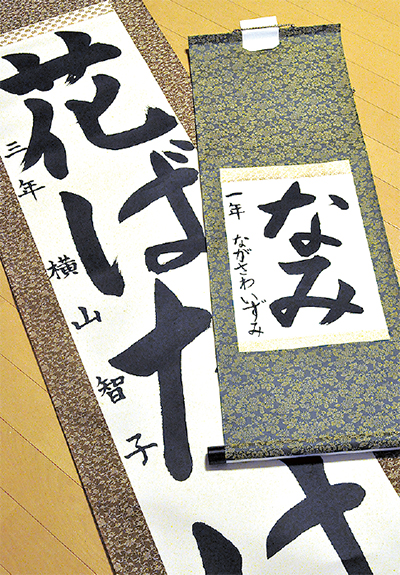 花ばたけ
三年 横山智子
なみ
一年 ながさわ いずみ